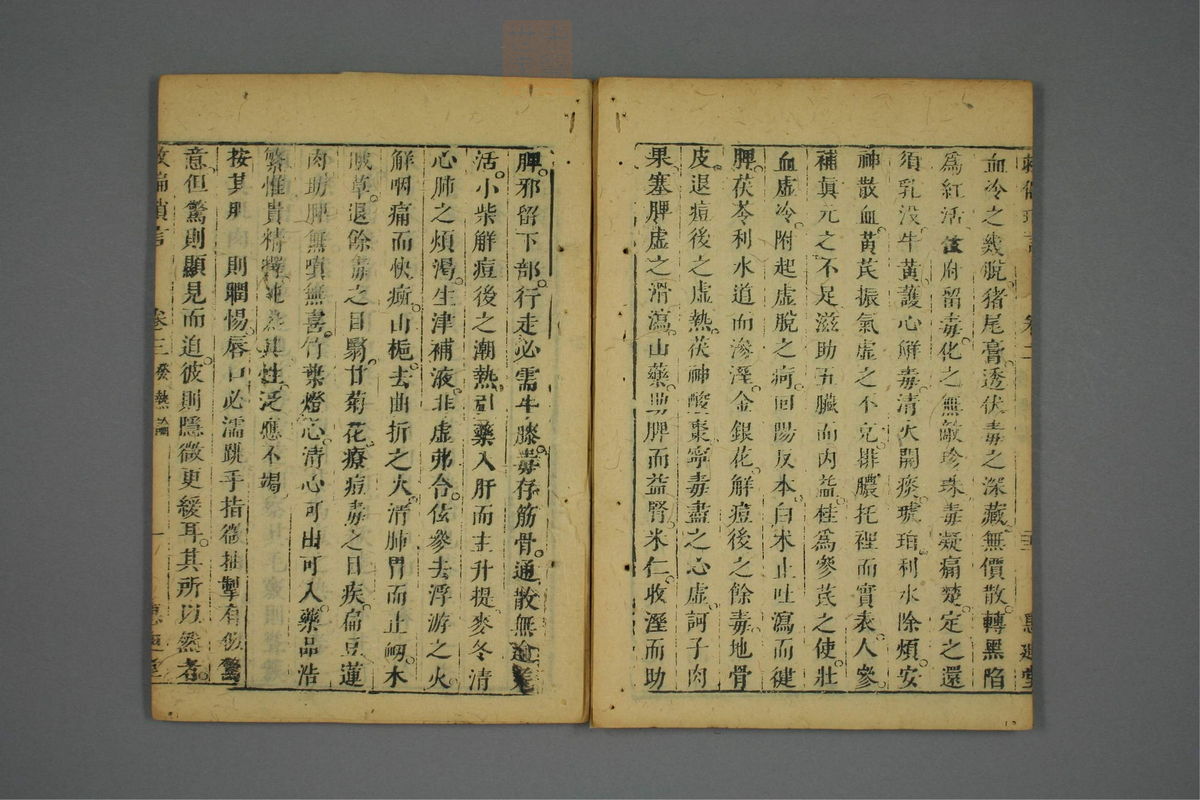 血冷之幾脫猪尾膏透伏毒之深藏無價散轉黑陷
爲紅活 府留毒化之無敵珍珠毒凝痛楚定之還
須乳没牛黃護心觧毒清火開痰琥珀利水除煩安
神散血黃芪振氣虛之不克排膿托裡而實表人參
補真元之不足滋助五臟而内益桂爲參芪之使壯
血虛冷附起虛脫之疴回陽反本白术止吐瀉而健
脾茯苓利水道而滲溼金銀花解痘後之餘毒地骨
皮退痘後之虛熱茯神酸棗寧毒盡之心虛訶子肉
果塞脾虛之滑瀉山藥助脾而益腎米仁收溼而助
脾邪留下部行走必需牛膝毒存筋骨通散無逾羌
活小柴觧痘後之潮熱引藥入肝而主升提麥冬清
心肺之煩渴生津補液非虛弗令玄參去浮游之火
解咽痛而快癍山梔去曲折之火清肺胃而止衂木
賊草退餘毒之目翳甘菊花療痘毒之目疾扁豆蓮
肉助脾無嗔無喜竹葉燈心清心可出可入藥品浩
繁惟貴精擇 其性泛應不竭
按其肌肉則瞤惕唇口必濡跳手指微抽掣有似驚
意但驚則顯見而迫彼則隱微更緩耳其所以然者
卷三 發熱